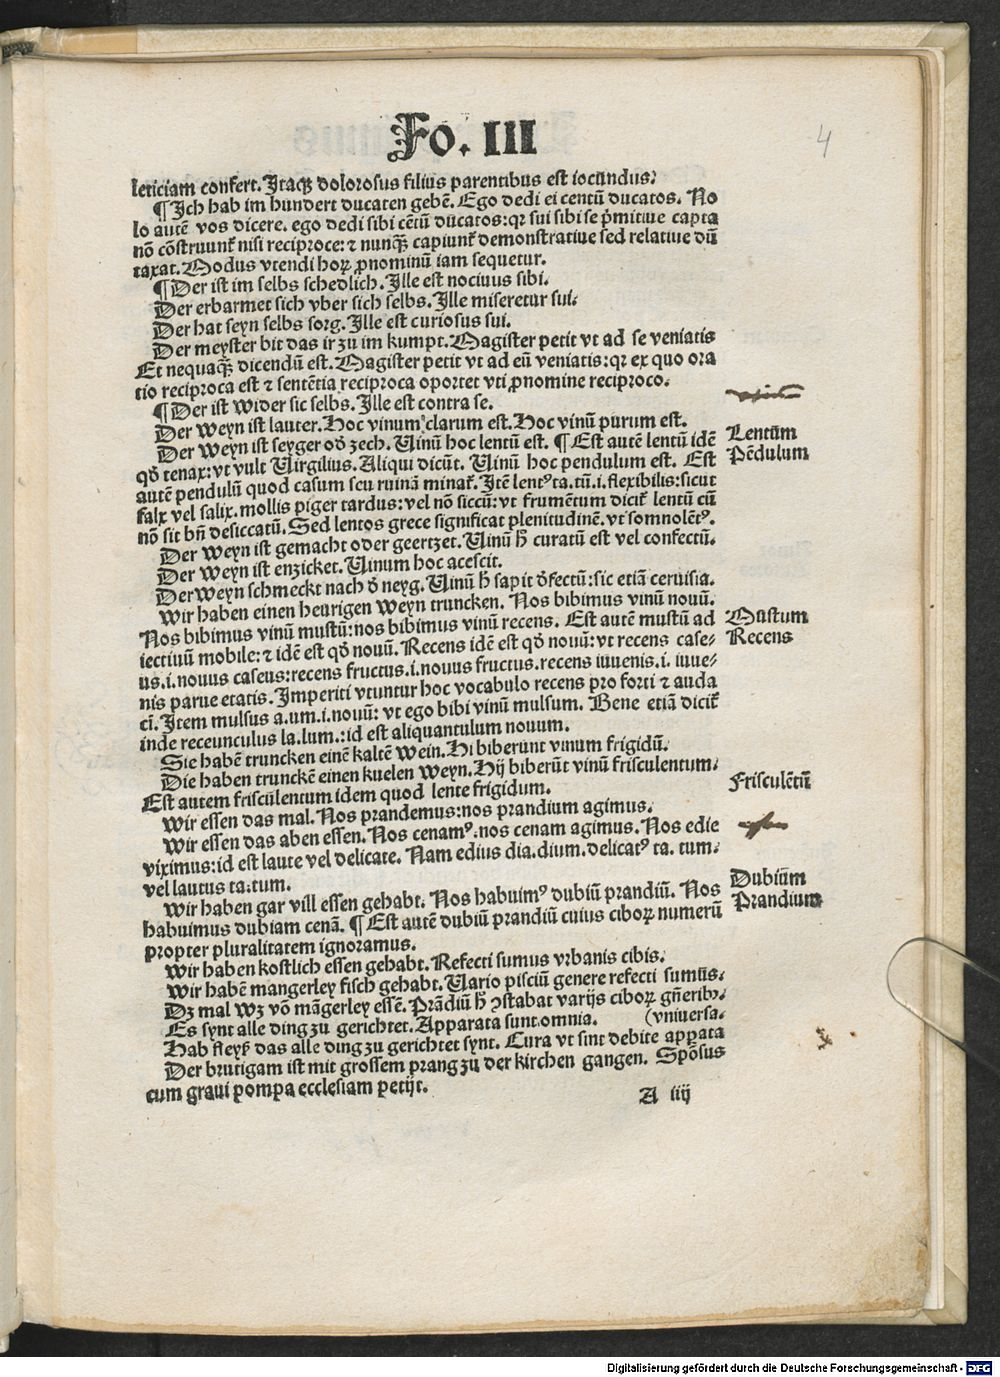 Fo. III
4
leticiam confert. Itaqꝫ dolorosus filius parentibus est iocundus.
¶ Ich hab im hundert ducaten gebē. Ego dedi ei centū ducatos. No
lo autē vos dicere. ego dedi sibi cētū ducatos: qꝛ sui sibi se pͥmitiue capta
nō cōstruunt᷑ nisi reciproce: ⁊ nunqꝫ capiunt᷑ demonstratiue sed relatiue dū
taxat. Modus vtendi hoꝝ ꝓnominū iam sequetur.
¶ Der ist im selbs schedlich. Ille est nociuus sibi.
Der erbarmet sich vber sich selbs. Ille miseretur sui.
Der hat seyn selbs sorg. Ille est curiosus sui.
Der meyster bit das ir zu im kumpt. Magister petit vt ad se veniatis
Et nequaqꝫ dicendū est. Magister petit vt ad eū veniatis: qꝛ ex quo ora
tio reciproca est ⁊ sentētia reciproca oportet vti ꝓnomine reciproco.
¶ Der ist wider sic selbs. Ille est contra se.
Der weyn ist lauter. Hoc vinum clarum est. Hoc vinū purum est.
Der weyn ist seyger oď zech. Uinū hoc lentū est. ¶ Est autē lentū idē
Lentum
qď tenax: vt vult Uirgilius. Aliqui dicūt. Uinū hoc pendulum est. Est
Pēdulum
autē pendulū quod casum seu ruinā minat᷑. Itē lentꝰ ta. tū. i. flexibilis: sicut
falx vel salix. mollis piger tardus: vel nō siccū: vt frumētum dicit᷑ lentū cū
nō sit bn̄ desiccatū. Sed lentos grece significat plenitudinē. vt somnolētꝰ.
Der weyn ist gemacht oder geertzet. Uinū h̄ curatū est vel confectū.
Der weyn ist enzicket. Uinum hoc acescit.
Der weyn schmeckt nach ď neyg. Uinū h̄ sapit ďfectū: sic etiā ceruisia.
Wir haben einen heurigen weyn truncken. Nos bibimus vinū nouū.
Nos bibimus vinū mustū: nos bibimus vinū recens. Est autē mustū ad
Mustum
iectiuū mobile: ⁊ idē est qď nouū. Recens idē est qď nouū: vt recens case⸗
Recens
us. i. nouus caseus: recens fructus. i. nouus fructus. recens iuuenis. i. iuue⸗
nis parue etatis. Imperiti vtuntur hoc vocabulo recens pro forti ⁊ auda
ci. Item mulsus a. um. i. nouū: vt ego bibi vinū mulsum. Bene etiā dicit᷑
inde receunculus la. lum.: id est aliquantulum nouum.
Sie habē truncken einē kaltē wein. Hi biberunt vinum frigidū.
Die haben trunckē einen kuelen weyn. Hij biberūt vinū frisculentum.
Frisculētū
Est autem frisculentum idem quod lente frigidum.
Wir essen das mal. Nos prandemus: nos prandium agimus.
Wir essen das aben essen. Nos cenamꝰ: nos cenam agimus. Nos edie
viximus: id est laute vel delicate. Nam edius dia. dium. delicatꝰ ta. tum.
vel lautus ta. tum.
Wir haben gar vill essen gehabt. Nos habuimꝰ dubiū prandiū. Nos
Dubium
habuimus dubiam cenā. ¶ Est autē dubiū prandiū cuius ciboꝝ numerū
Prandium
propter pluralitatem ignoramus.
Wir haben kostlich essen gehabt. Refecti sumus vrbanis cibis.
Wir habē mangerley fisch gehabt. Uario pisciū genere refecti sumus.
Dꝫ mal wꝫ vō māgerley essē. Prādiū h̄ ꝯstabat varijs ciboꝝ gn̄eribꝰ.
Es synt alle ding zu gerichtet. Apparata sunt omnia. (vniuersa.
Hab fleyß das alle ding zu gerichtet synt. Cura vt sint debite apꝑata
Der brutigam ist mit grossem prang zu der kirchen gangen. Spōsus
cum graui pompa ecclesiam petijt.
A iiij
Digitalisierung gefördert durch die Deutsche Forschungsgemeinschaft - DFG